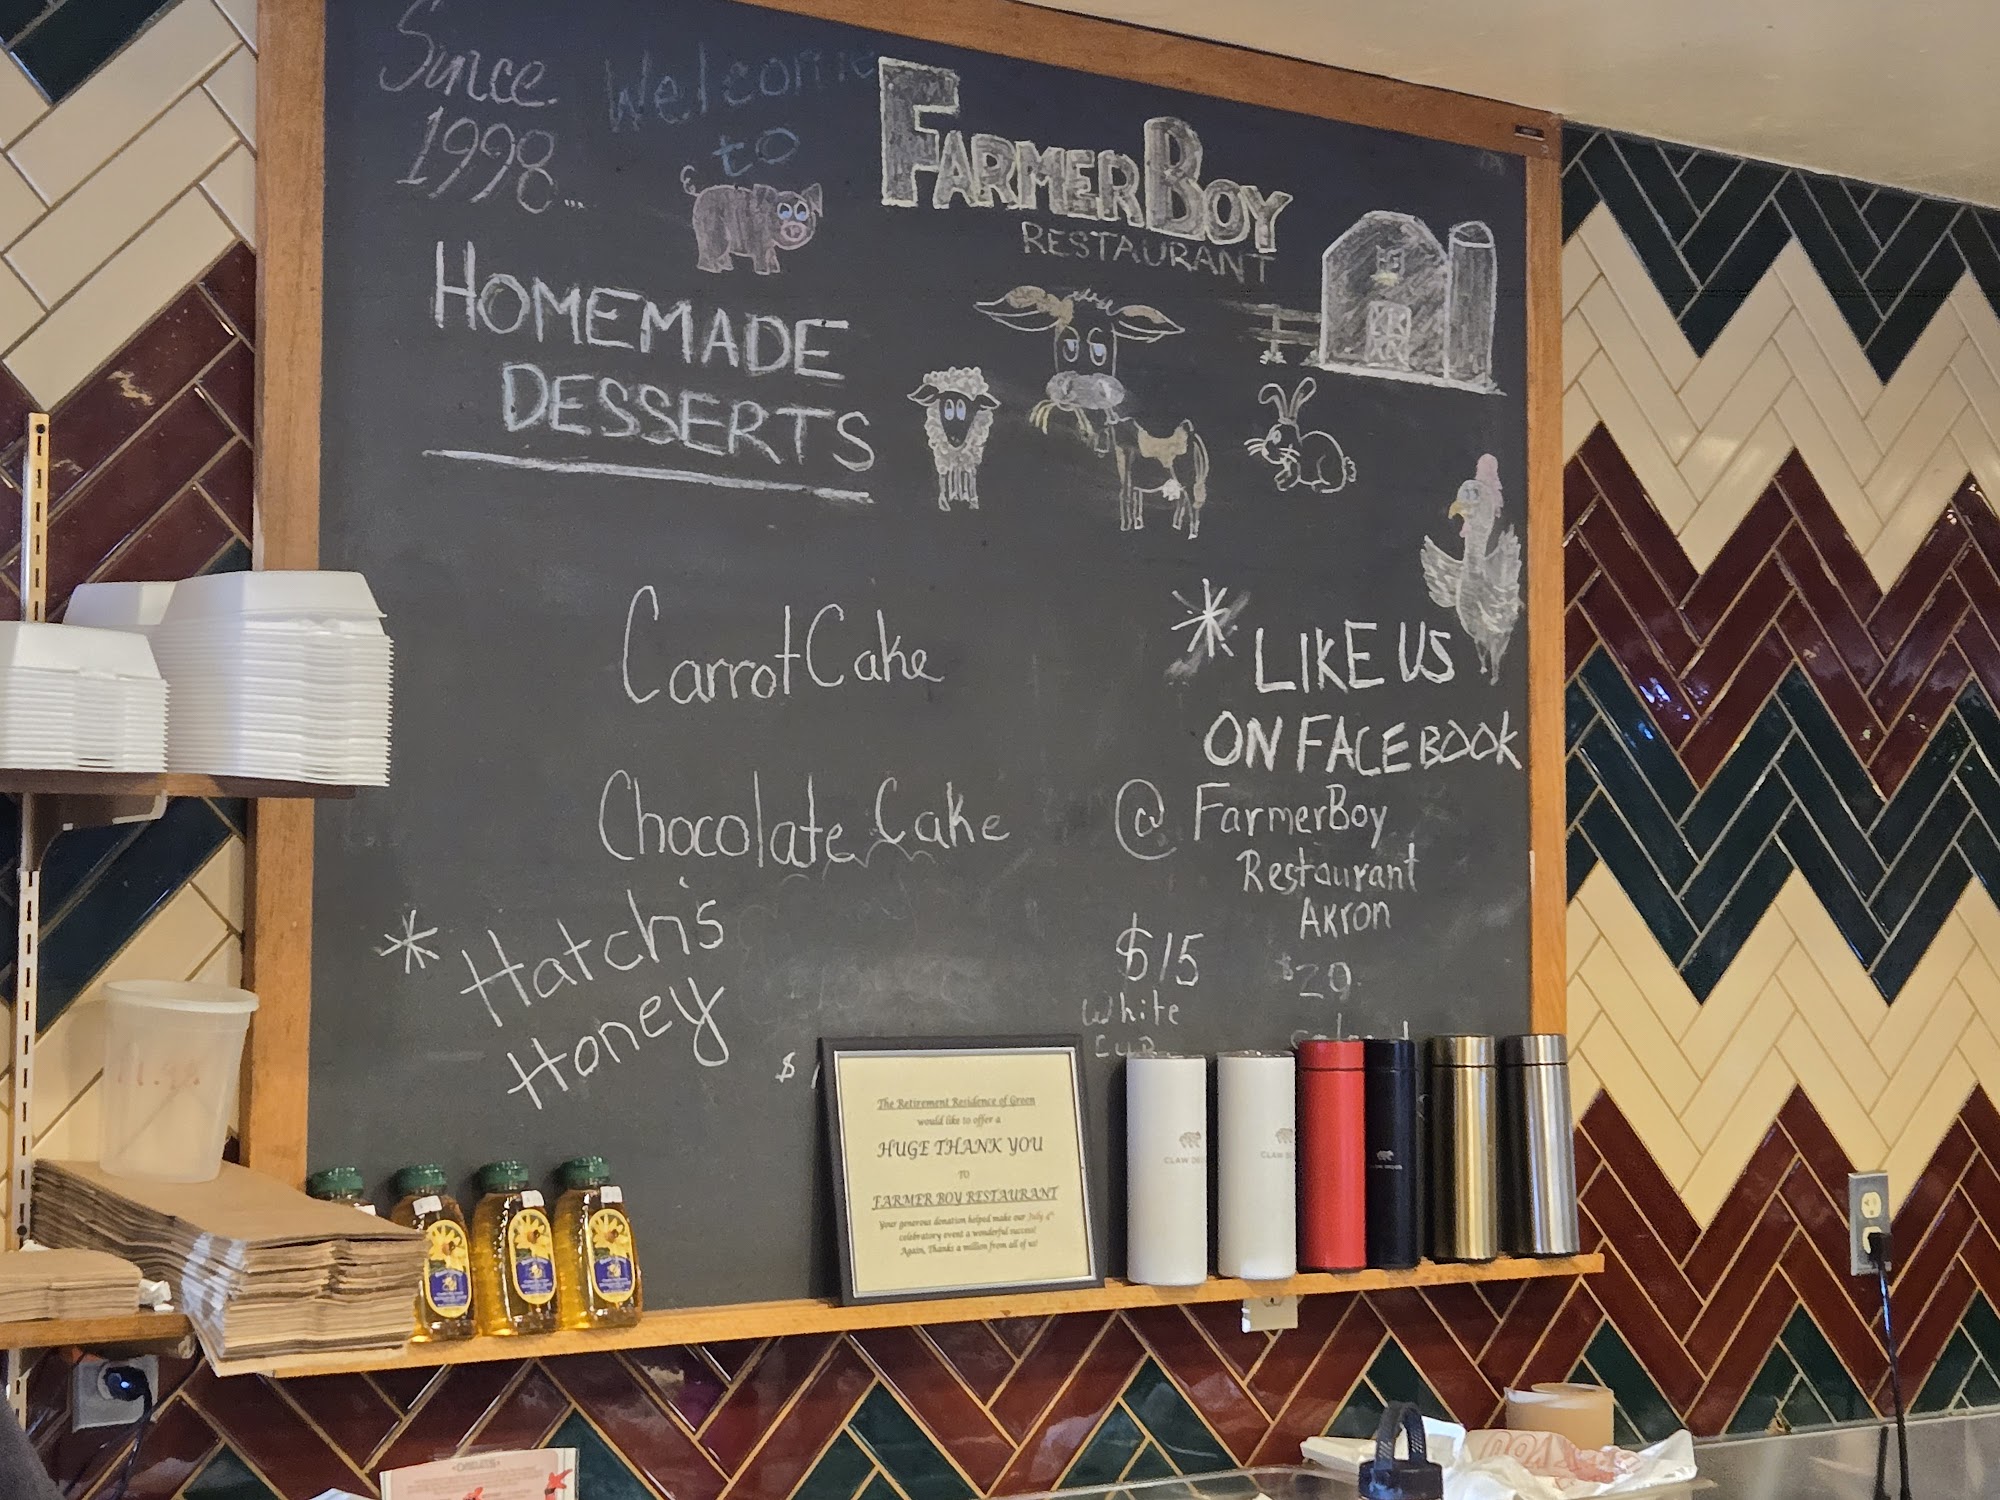 Since
1998...
Welcome
to
FARMERBOY
RESTAURANT
HOMEMADE
DESSERTS
Carrot Cake
Chocolate Cake
* Hatch's
Honey
$
* LIKE US
ON FACEBOOK
@ FarmerBoy
Restaurant
Akron
$15
White
Cup
$20
The Retirement Residence of Green
would like to offer a
HUGE THANK YOU
TO
FARMER BOY RESTAURANT
Your generous donation helped make our July 4th
celebratory event a wonderful success!
Again, Thanks a million from all of us!
CLAW
CLAW